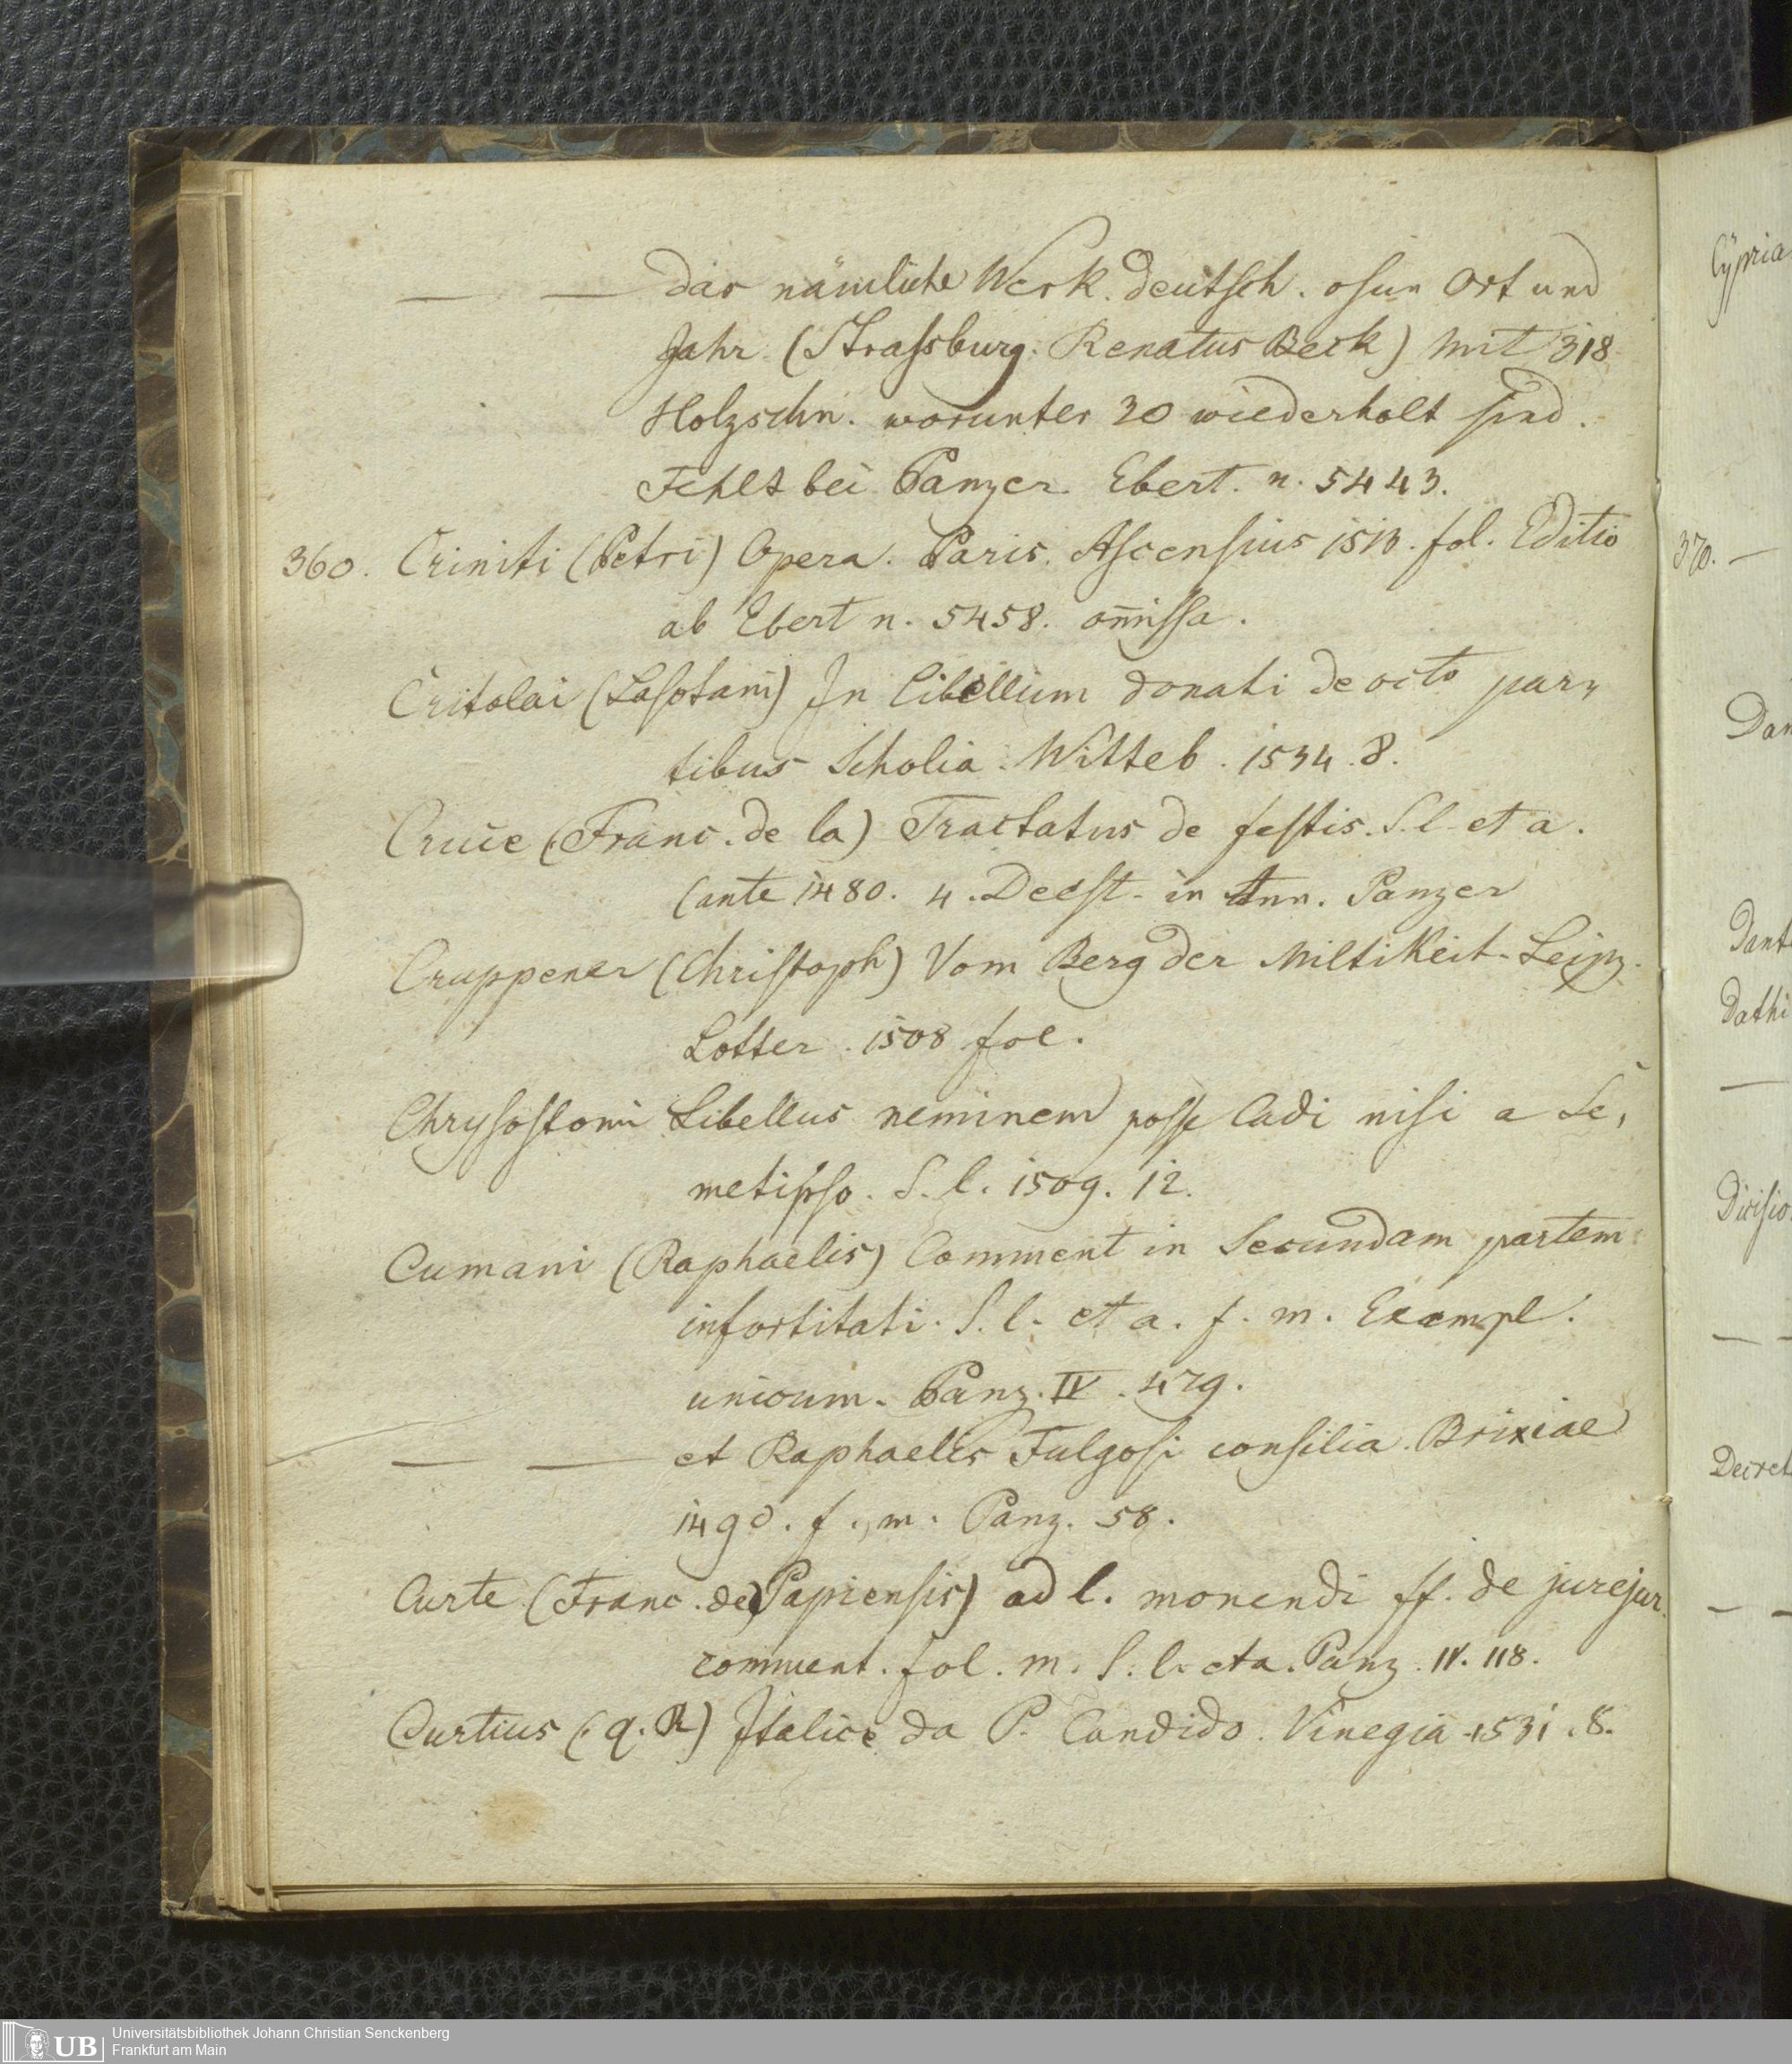 — — das nämliche Werk. deutsch. ohne Ort und
Jahr (Strassburg. Renatus Beck) mit 318
Holzschn. worunter 20 wiederholt sind.
Fehlt bei Panzer. Ebert. n. 5443.
360. Criniti (Petri) Opera. Paris. Ascensius 1513. fol. Editio
ab Ebert n. 5458. omissa.
Critolai (Lasotani) In libellum donati de octo par-
tibus Scholia. Witteb. 1534. 8.
Cruce (Franc. de la) Tractatus de festis. S. l. et a.
(ante 1480. 4. Deest. in Ann. Panzer
Cruppener (Christoph) Vom Berg der Miltikeit. Leipz.
Lotter. 1508 fol.
Chrysostomi Libellus neminem posse ladi nisi a Se,
metipso. S. l. 1509. 12.
Cumani (Raphaelis) Comment in Secundam partem
infortitati. S. l. et a. f. m. Exempl.
unicum. Panz. IV. 479.
— — et Raphaelis Fulgosi consilia. Brixiae
1490. f. m. Panz. 58.
Curte (Franc. de) Papiensis) ad l. monendi ff. de jurejur.
comment. fol. m. S. l. et a. Panz. IV. 118.
Curtius (q. R) Italice da P. Candido. Vinegia. 1531. 8.
Cypria
370. —
Dan
Dant
Dathi
—
Divisio
— —
Decret
— —
UB
Universitätsbibliothek Johann Christian Senckenberg
Frankfurt am Main